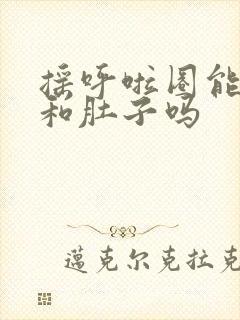 摇呼啦圈能
和肚子吗
邁克尔克拉克